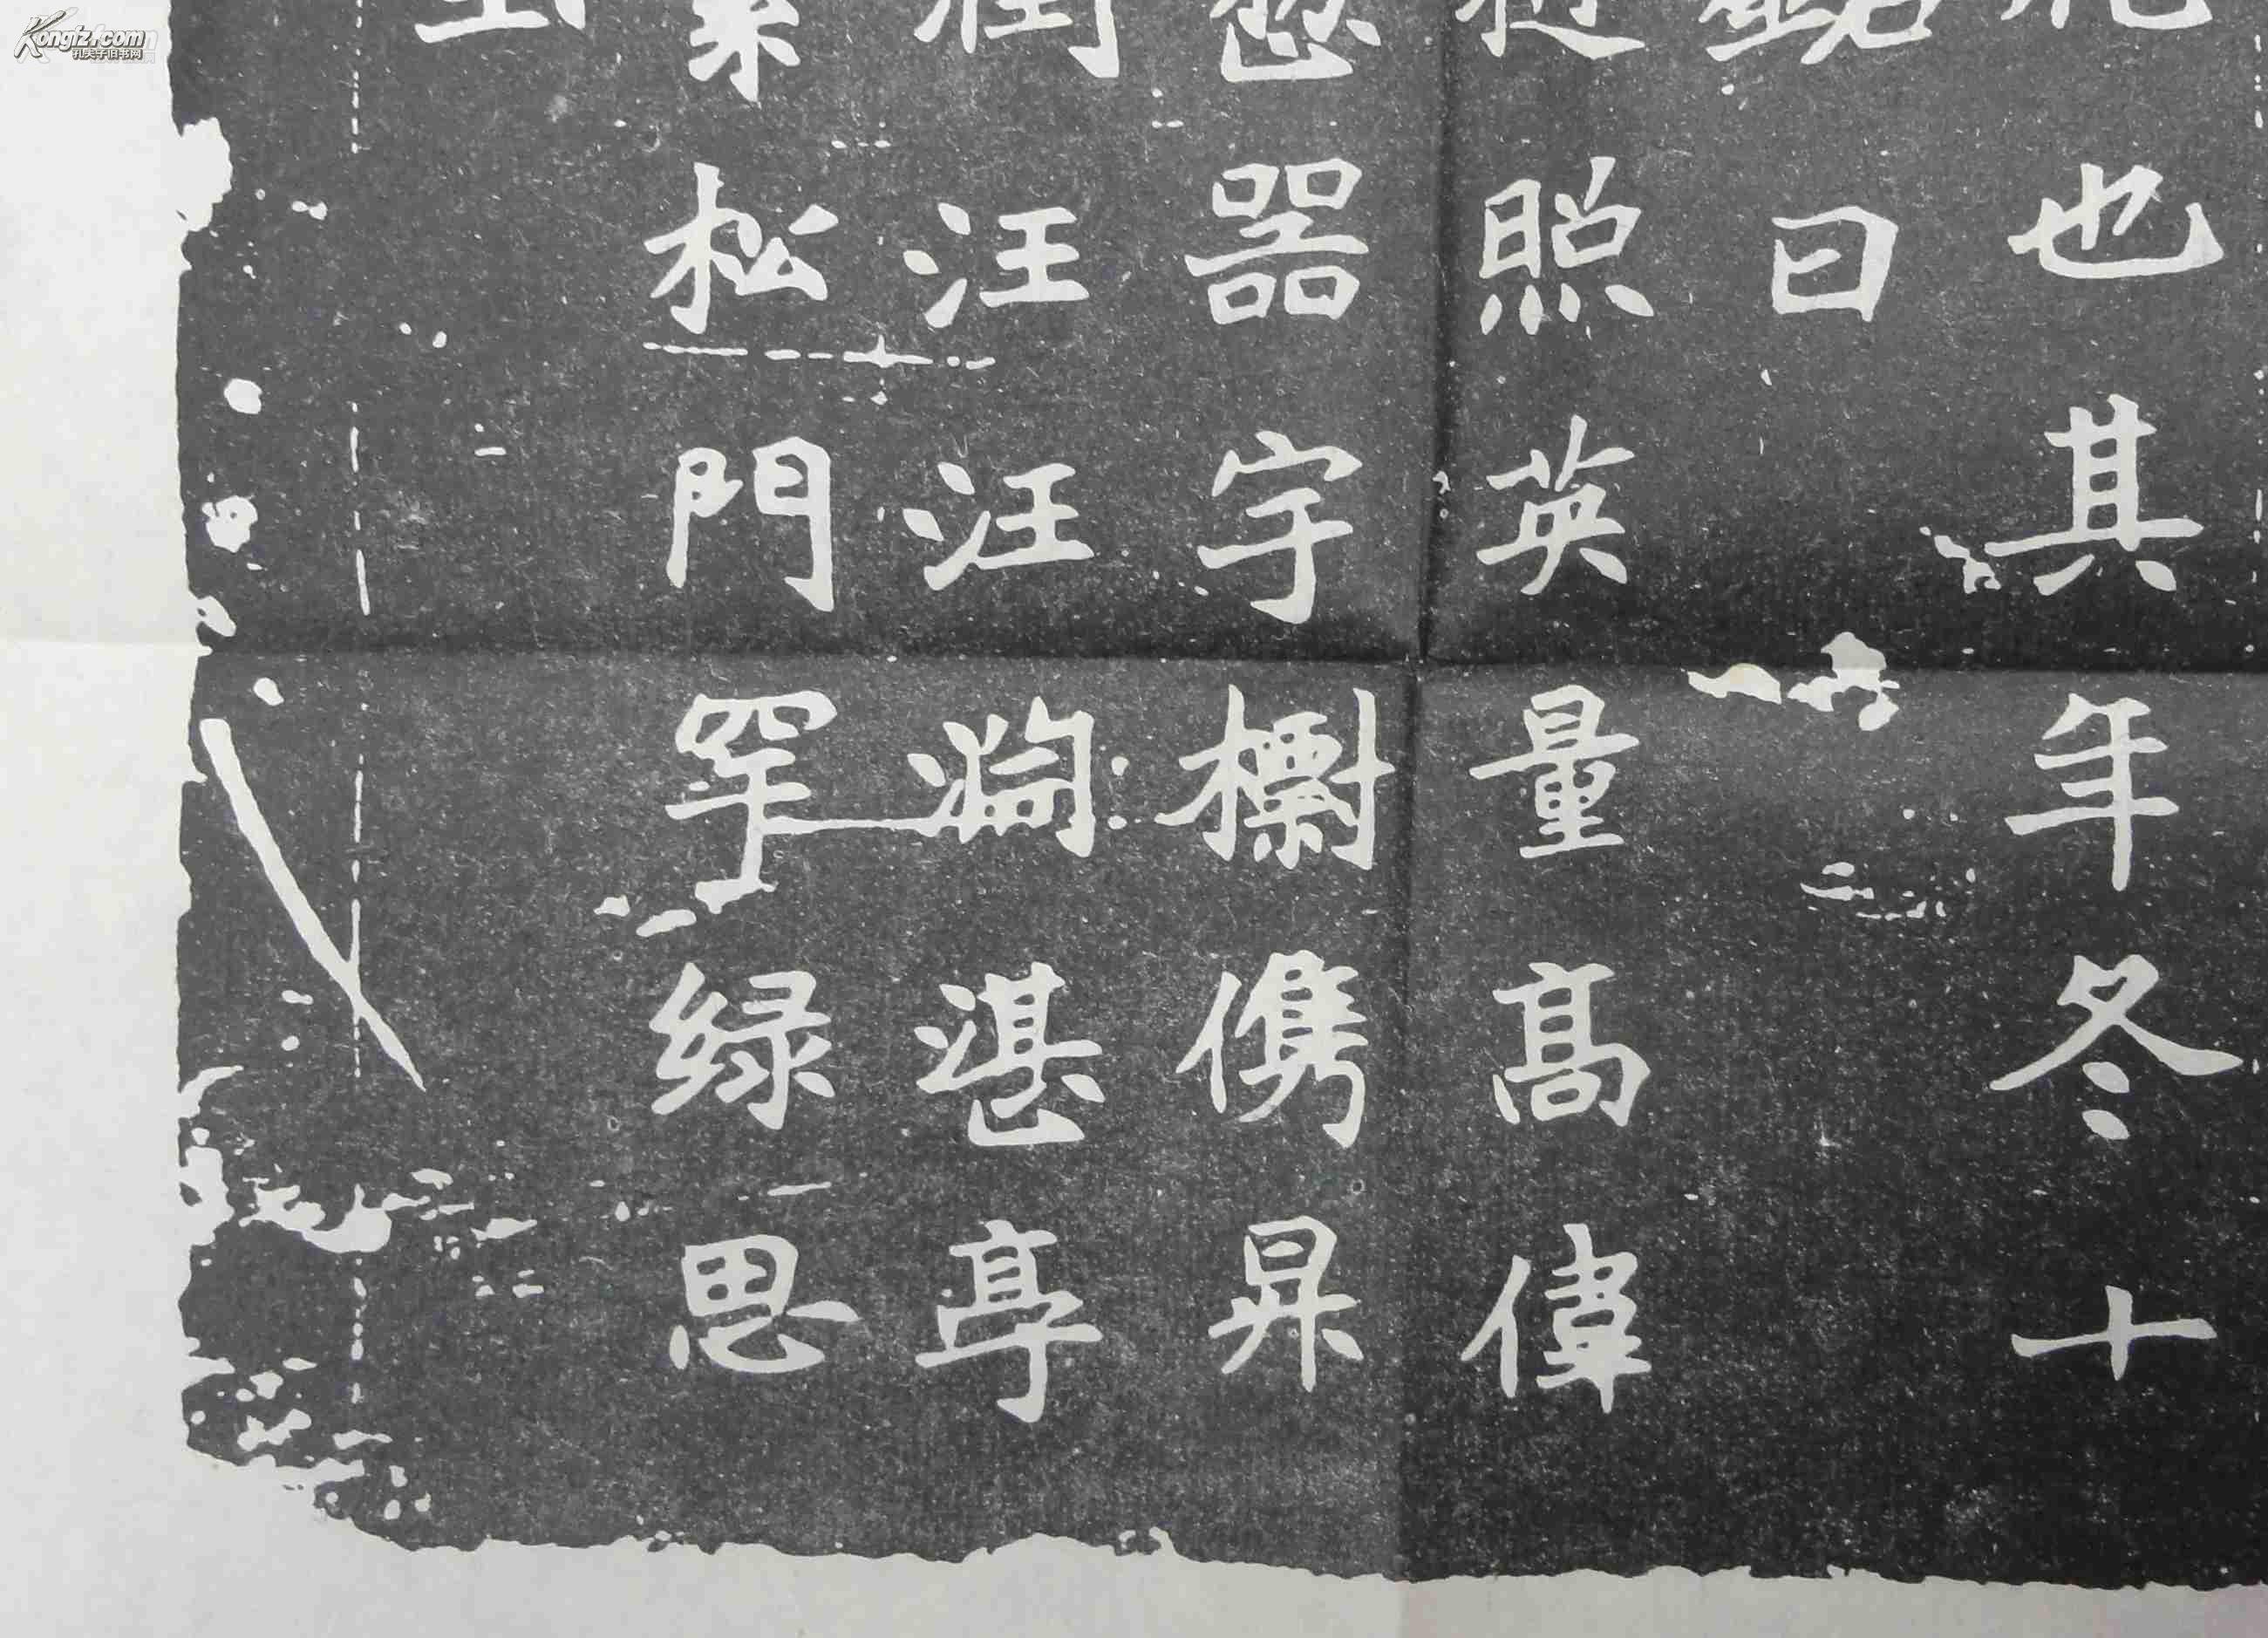 Kongfz.com
孔夫子旧书网
也其年冬十
銘曰
挺照英量高偉
器宇儁昇
汪汪淵湛亭
松門罕緑思